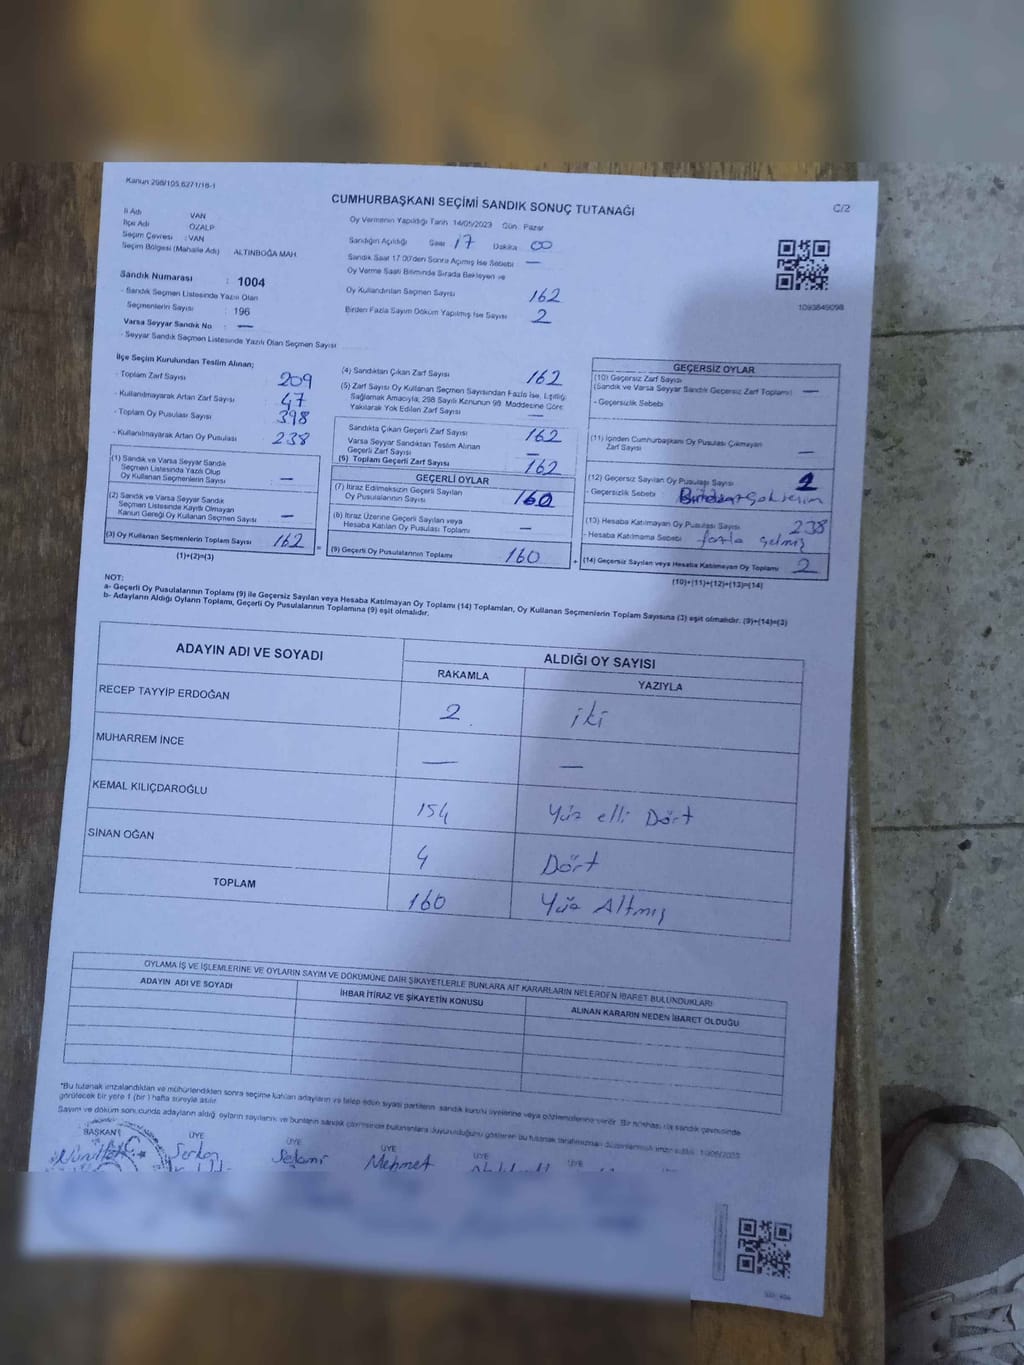 Kanun 298/105.6271/16-1
CUMHURBAŞKANI SEÇİMİ SANDIK SONUÇ TUTANAĞI
C/2
İl Adı VAN
İlçe Adı ÖZALP
Seçim Çevresi : VAN
Seçim Bölgesi (Mahalle Adı) ALTINBOĞA MAH.
Oy Vermenin Yapıldığı Tarih 14/05/2023 Gün: Pazar
Sandığın Açıldığı Saat 17 Dakika 00
Sandık Saat 17.00'den Sonra Açımış İse Sebebi —
Oy Verme Saati Bitiminde Sırada Bekleyen ve
Oy Kullandırılan Seçmen Sayısı 162
Birden Fazla Sayım Döküm Yapılmış İse Sayısı 2
1093849098
Sandık Numarası : 1004
- Sandık Seçmen Listesinde Yazılı Olan
Seçmenlerin Sayısı : 196
Varsa Seyyar Sandık No : —
- Seyyar Sandık Seçmen Listesinde Yazılı Olan Seçmen Sayısı
İlçe Seçim Kurulundan Teslim Alınan;
- Toplam Zarf Sayısı 209
- Kullanılmayarak Artan Zarf Sayısı 47
- Toplam Oy Pusulası Sayısı 398
- Kullanılmayarak Artan Oy Pusulası 238
(1) Sandık ve Varsa Seyyar Sandık
Seçmen Listesinde Yazılı Olup
Oy Kullanan Seçmenlerin Sayısı —
(2) Sandık ve Varsa Seyyar Sandık
Seçmen Listesinde Kayıtlı Olmayan
Kanun Gereği Oy Kullanan Seçmen Sayısı —
(3) Oy Kullanan Seçmenlerin Toplam Sayısı 162
(1)+(2)=(3)
(4) Sandıktan Çıkan Zarf Sayısı 162
(5) Zarf Sayısı Oy Kullanan Seçmen Sayısından Fazla İse, Eşitliği
Sağlamak Amacıyla, 298 Sayılı Kanunun 98. Maddesine Göre
Yakılarak Yok Edilen Zarf Sayısı —
Sandıkta Çıkan Geçerli Zarf Sayısı 162
Varsa Seyyar Sandıktan Teslim Alınan
Geçerli Zarf Sayısı —
(6) Toplam Geçerli Zarf Sayısı 162
GEÇERLİ OYLAR
(7) İtiraz Edilmeksizin Geçerli Sayılan
Oy Pusulalarının Sayısı 160
(8) İtiraz Üzerine Geçerli Sayılan veya
Hesaba Katılan Oy Pusulası Toplamı —
(9) Geçerli Oy Pusulalarının Toplamı 160
GEÇERSİZ OYLAR
(10) Geçersiz Zarf Sayısı
(Sandık ve Varsa Seyyar Sandık Geçersiz Zarf Toplamı) —
- Geçersizlik Sebebi
(11) İçinden Cumhurbaşkanı Oy Pusulası Çıkmayan
Zarf Sayısı —
(12) Geçersiz Sayılan Oy Pusulası Sayısı 2
- Geçersizlik Sebebi
(13) Hesaba Katılmayan Oy Pusulası Sayısı 238
- Hesaba Katılmama Sebebi fazla gelmiş
(14) Geçersiz Sayılan veya Hesaba Katılmayan Oy Toplamı 2
(10)+(11)+(12)+(13)=(14)
NOT:
a- Geçerli Oy Pusulalarının Toplamı (9) ile Geçersiz Sayılan veya Hesaba Katılmayan Oy Toplamı (14) Toplamları, Oy Kullanan Seçmenlerin Toplam Sayısına (3) eşit olmalıdır. (9)+(14)=(3)
b- Adayların Aldığı Oyların Toplamı, Geçerli Oy Pusulalarının Toplamına (9) eşit olmalıdır.
ADAYIN ADI VE SOYADI
ALDIĞI OY SAYISI
RAKAMLA YAZIYLA
RECEP TAYYİP ERDOĞAN 2 iki
MUHARREM İNCE — —
KEMAL KILIÇDAROĞLU 154 Yüz elli Dört
SİNAN OĞAN 4 Dört
TOPLAM 160 Yüz Altmış
OYLAMA İŞ VE İŞLEMLERİNE VE OYLARIN SAYIM VE DÖKÜMÜNE DAİR ŞİKAYETLERLE BUNLARA AİT KARARLARIN NELERDEN İBARET BULUNDUKLARI
ADAYIN ADI VE SOYADI
İHBAR İTİRAZ VE ŞİKAYETİN KONUSU
ALINAN KARARIN NEDEN İBARET OLDUĞU
*Bu tutanak imzalandıktan ve mühürlendikten sonra seçime katılan adayların ve talep eden siyasi partilerin sandık kurulu üyelerine veya gözlemcilerine verilir. Bir nüshası da sandık çevresinde
görülecek bir yere 1 (bir) hafta süreyle asılır.
Sayım ve döküm sonucunda adayların aldığı oyların sayılarını ve bunların sandık çevresinde bulunanlara duyurulduğunu gösteren bu tutanak tarafımızdan düzenlenerek imza edildi.
BAŞKAN ÜYE ÜYE ÜYE ÜYE ÜYE
Serkan Selami Mehmet